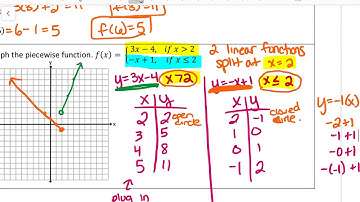 f(6)=5
=6-1=5
ph the piecewise function. f(x) = { 3x − 4, if x > 2
−x + 1, if x ≤ 2
2 linear functions
split at x = 2
y=3x-4 x>2
x y
2 2 open circle
3 5
4 8
5 11
plug in
y=-x+1 x≤2
x y
2 -1 closed circle.
1 0
0 1
-1 2
y=-1(x)
-2+1
-1+1
-0+1
-(-1)+1